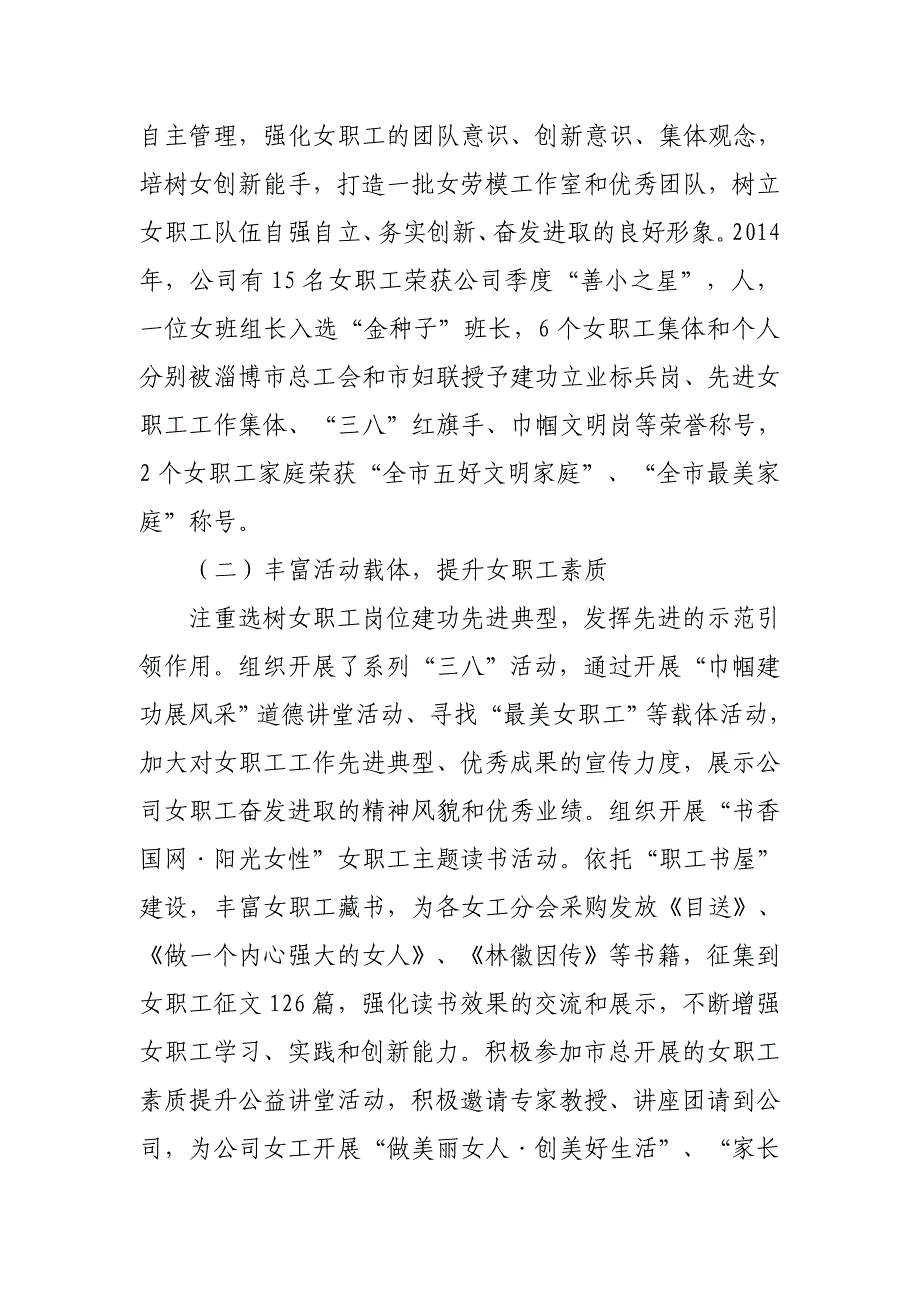 自主管理，强化女职工的团队意识、创新意识、集体观念，
培树女创新能手，打造一批女劳模工作室和优秀团队，树立
女职工队伍自强自立、务实创新、奋发进取的良好形象。2014
年，公司有 15 名女职工荣获公司季度“善小之星”，人，
一位女班组长入选“金种子”班长，6 个女职工集体和个人
分别被淄博市总工会和市妇联授予建功立业标兵岗、先进女
职工工作集体、“三八”红旗手、巾帼文明岗等荣誉称号，
2 个女职工家庭荣获“全市五好文明家庭”、“全市最美家
庭”称号。
（二）丰富活动载体，提升女职工素质
注重选树女职工岗位建功先进典型，发挥先进的示范引
领作用。组织开展了系列“三八”活动，通过开展“巾帼建
功展风采”道德讲堂活动、寻找“最美女职工”等载体活动，
加大对女职工工作先进典型、优秀成果的宣传力度，展示公
司女职工奋发进取的精神风貌和优秀业绩。组织开展“书香
国网·阳光女性”女职工主题读书活动。依托“职工书屋”
建设，丰富女职工藏书，为各女工分会采购发放《目送》、
《做一个内心强大的女人》、《林徽因传》等书籍，征集到
女职工征文 126 篇，强化读书效果的交流和展示，不断增强
女职工学习、实践和创新能力。积极参加市总开展的女职工
素质提升公益讲堂活动，积极邀请专家教授、讲座团请到公
司，为公司女工开展“做美丽女人·创美好生活”、“家长